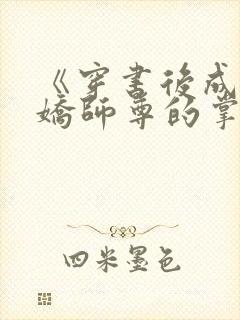 《穿书後成
嬌師尊的掌
四米墨色